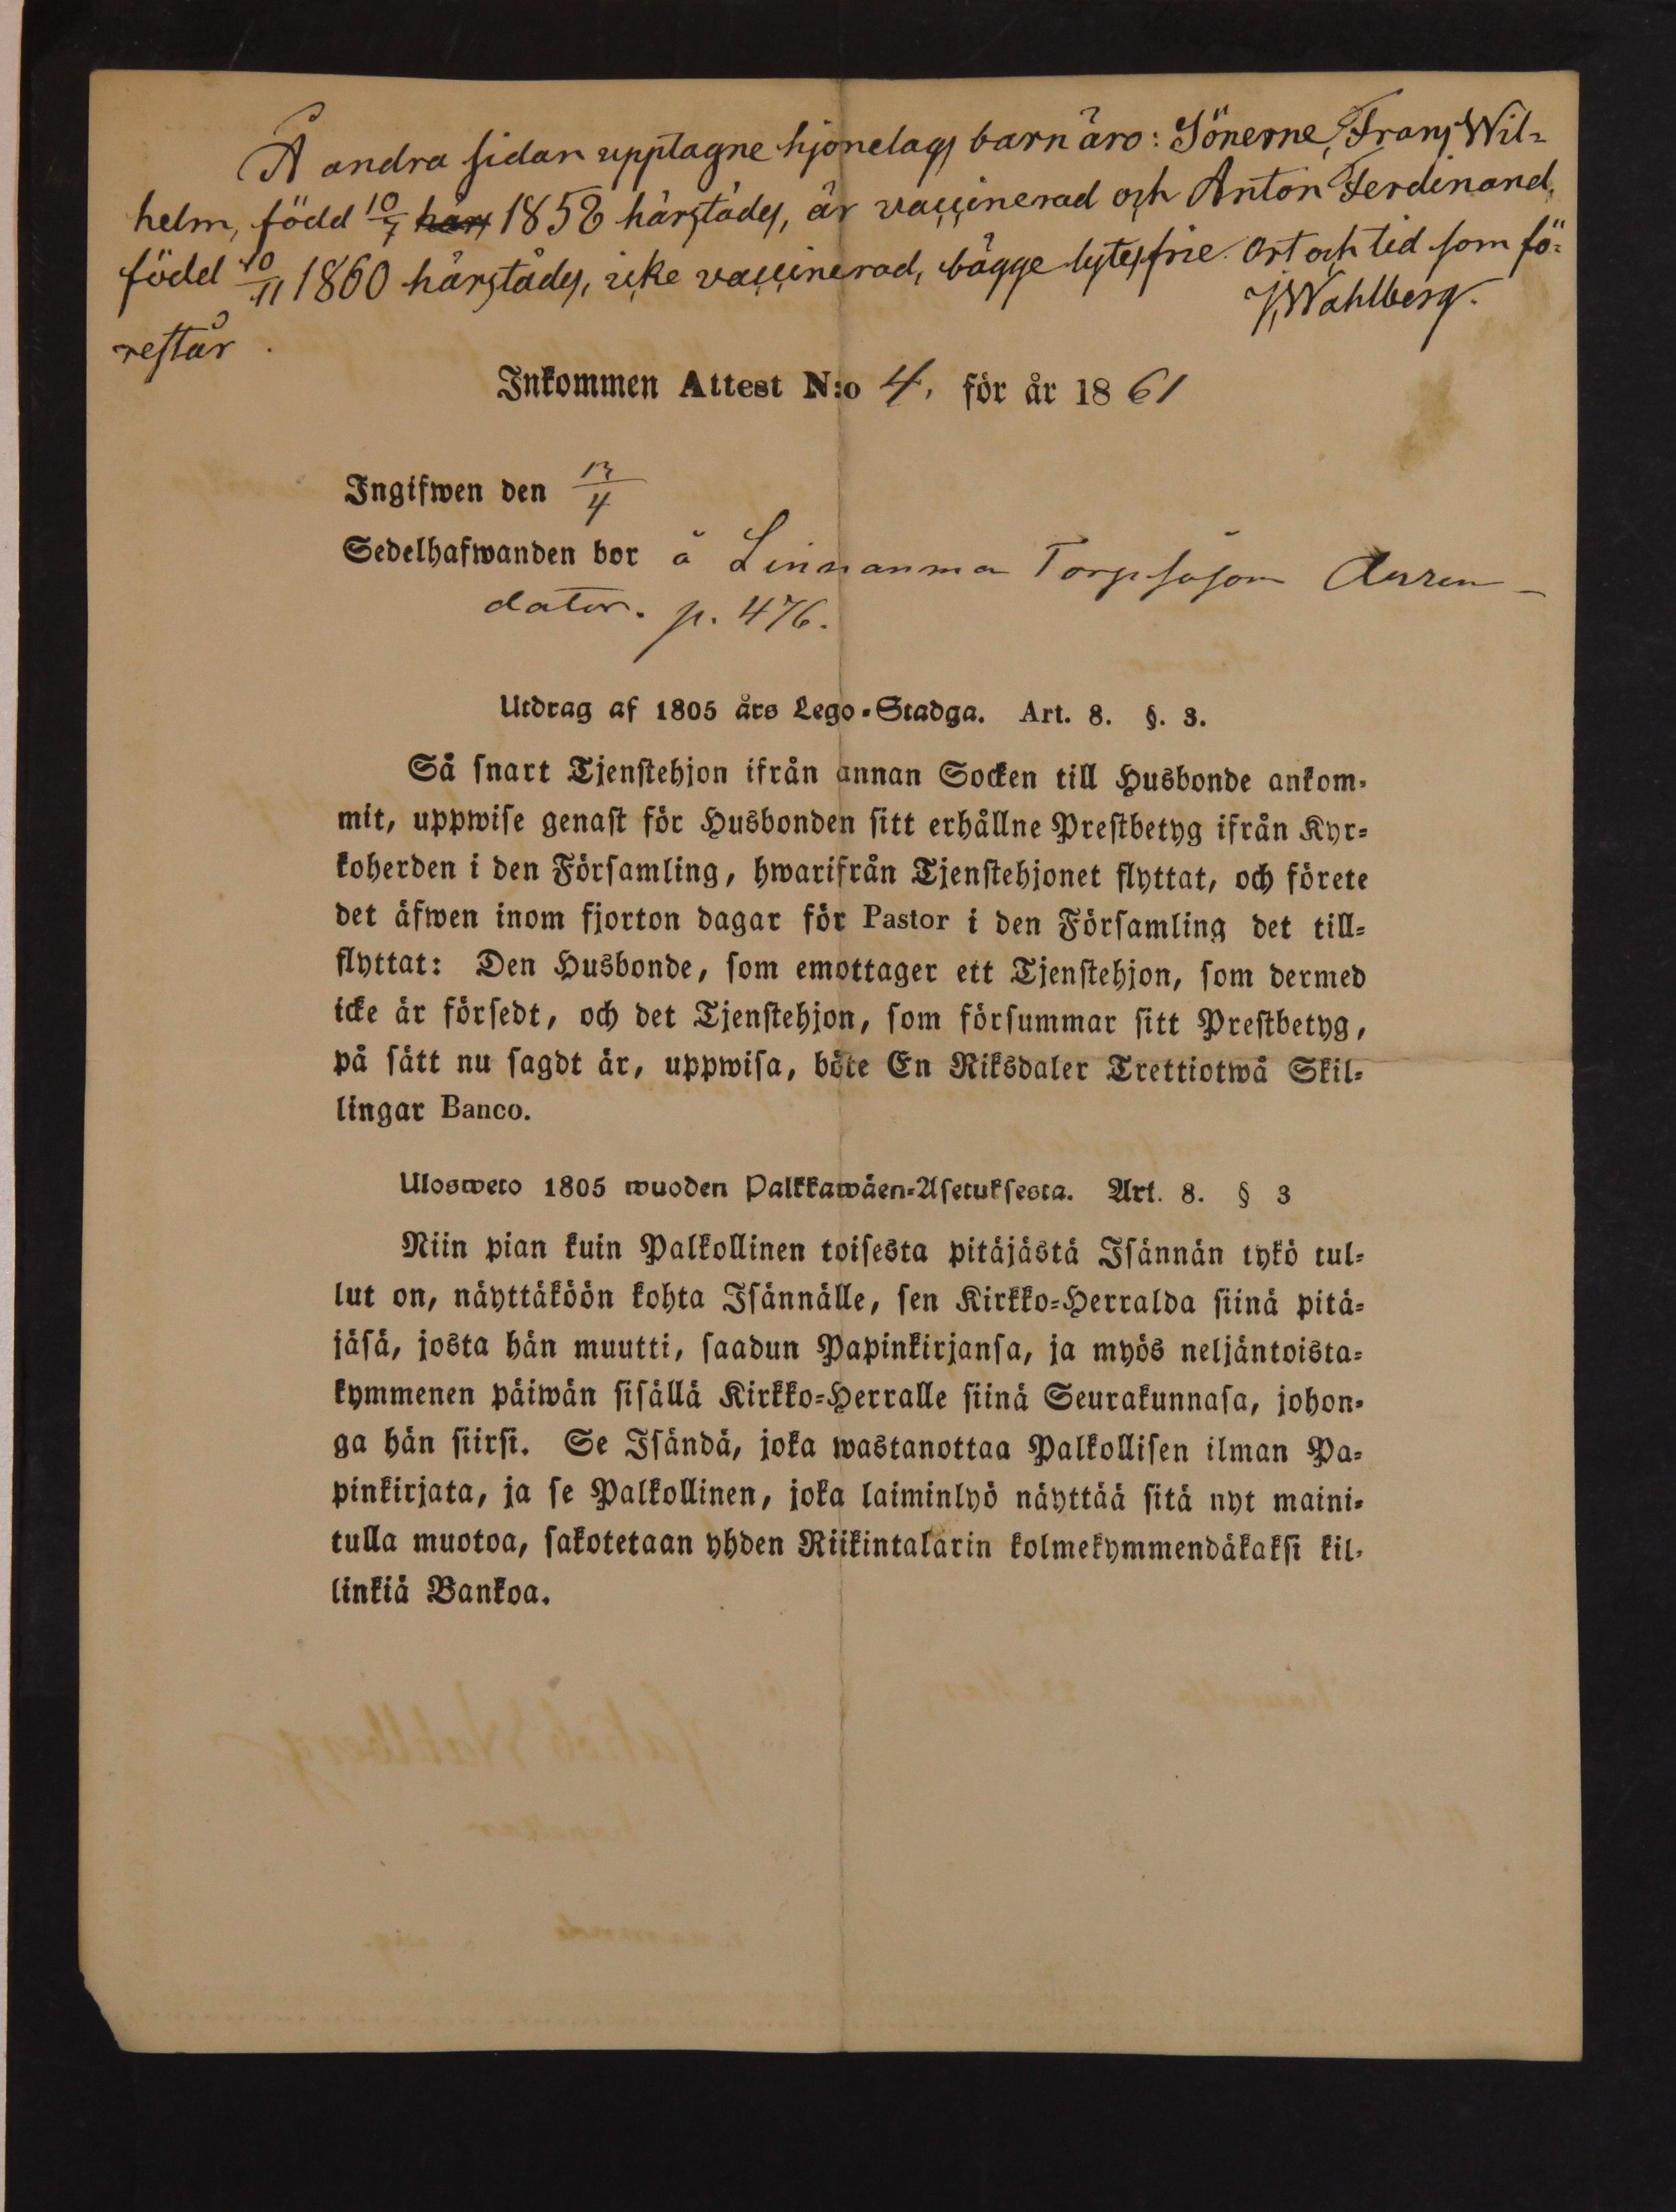 Å andra sidan upptagne hjonelags barn äro: Sönerne, Frans Wil=
helm, född 10/7 härs 1858 härstädes, är vaccinerad och Anton Ferdinand,
född 10/11 1860 härstädes, icke vaccinerad, bägge lytesfrie. Ort och tid som fö=
restår. J. Wahlberg.
Inkommen Attest N:o 4, för år 1861
Ingifwen den 13/4
Sedelhafwanden bor å Linnanmaa Torp såsom Arren-
dator. p. 476.
Utdrag af 1805 års Lego-Stadga. Art. 8. §. 3.
Så snart Tjenstehjon ifrån annan Socken till Husbonde ankom-
mit, uppwise genast för Husbonden sitt erhållne Prestbetyg ifrån Kyr=
koherden i den Församling, hwarifrån Tjenstehjonet flyttat, och förete
det äfwen inom fjorton dagar för Pastor i den Församling det till=
flyttat: Den Husbonde, som emottager ett Tjenstehjon, som dermed
icke är försedt, och det Tjenstehjon, som försummar sitt Prestbetyg,
på sätt nu sagdt är, uppwisa, böte En Riksdaler Trettiotwå Skil=
lingar Banco.
Ulosweto 1805 wuoden Palkkawäen=Asetuksesta. Art. 8. § 3
Niin pian kuin Palkollinen toisesta pitäjästä Isännän tykö tul=
lut on, näyttäköön kohta Isännälle, sen Kirkko=Herralda siinä pitä=
jäsä, josta hän muutti, saadun Papinkirjansa, ja myös neljäntoista=
kymmenen päiwän sisällä Kirkko=Herralle siinä Seurakunnasa, johon-
ga hän siirsi. Se Isändä, joka wastanottaa Palkollisen ilman Pa=
pinkirjata, ja se Palkollinen, joka laiminlyö näyttää sitä nyt maini-
tulla muotoa, sakotetaan yhden Riikintalarin kolmekymmendäkaksi kil-
linkiä Bankoa.